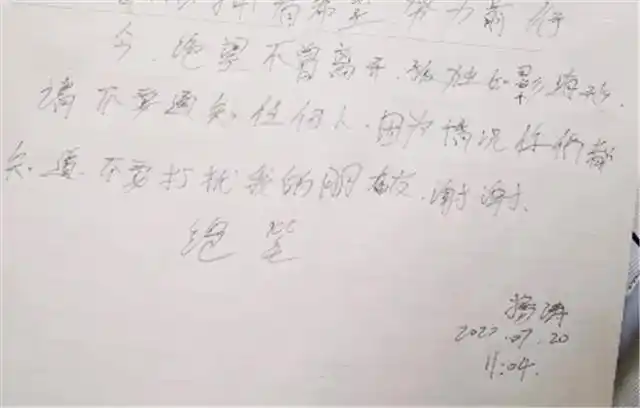 都是努力前行
今.绝望不曾离开.孤独如影随形.
请不要通知任何人.因为情况你们都
知道.不要打扰我的朋友.谢谢.
绝笔
涛
2022.07.20
11:04.